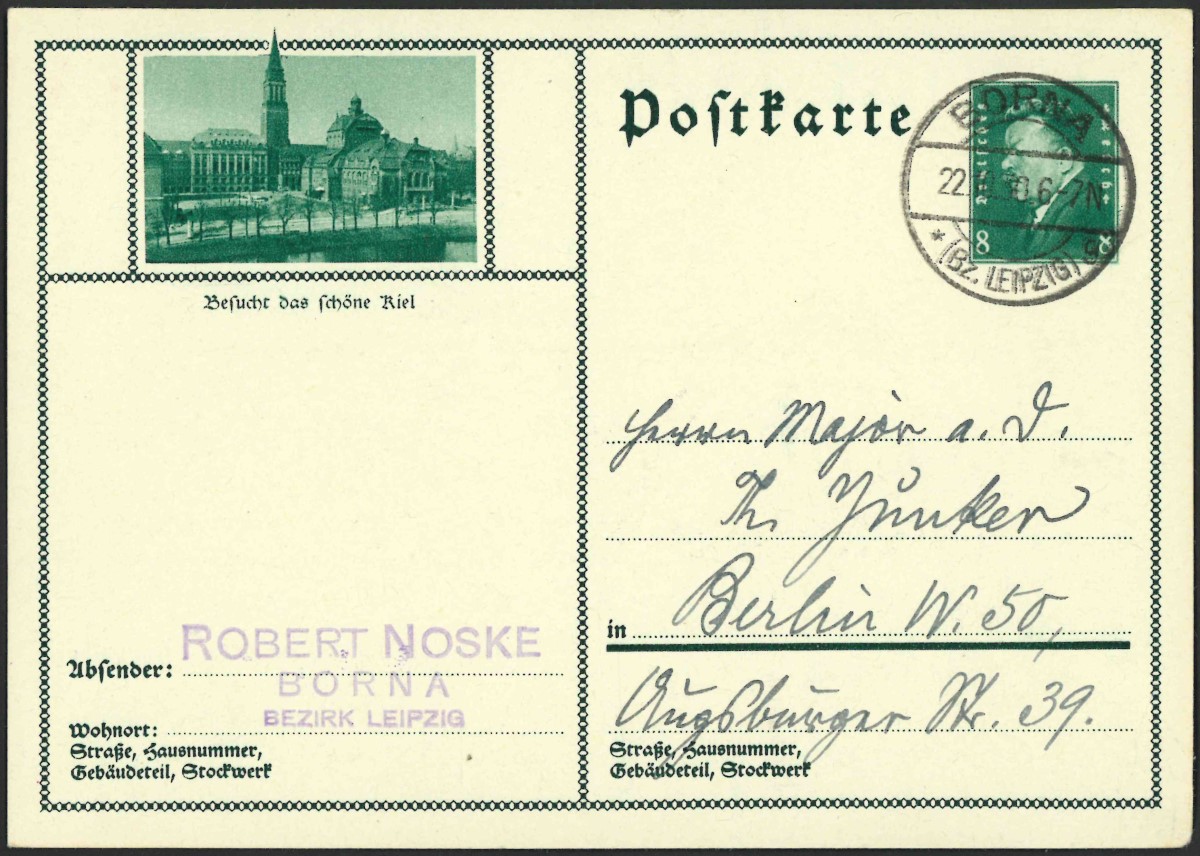 Besucht das schöne Kiel
Postkarte
BORNA
22. 6-7N
* (Bz. LEIPZIG)
8 8
Herrn Major a. D.
Th. Junker
in Berlin W. 50,
Augsburger Str. 39.
Straße, Hausnummer,
Gebäudeteil, Stockwerk
ROBERT NOSKE
Absender:
BORNA
BEZIRK LEIPZIG
Wohnort:
Straße, Hausnummer,
Gebäudeteil, Stockwerk